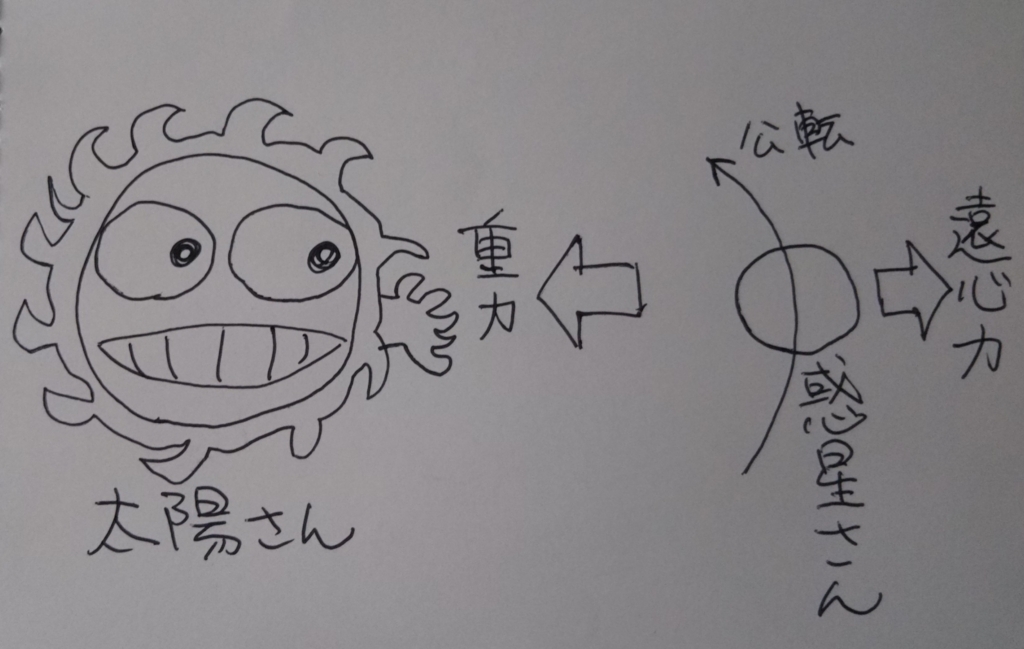 公転
重力
遠心力
惑星さん
太陽さん